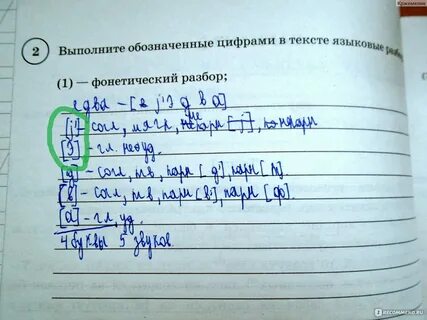 Кржемилик
2 Выполните обозначенные цифрами в тексте языковые разбо
(1) — фонетический разбор;
едва – [j' э д в а]
[j'] – согл, мягк, непарн [j], непарн
[э] – гл. неуд.
[д] – согл, тв, парн [д'], парн [т].
[в] – согл, тв, парн [в'], парн [ф].
[а] – гл, уд.
4 буквы 5 звуков.
IRECOMMEND.RU